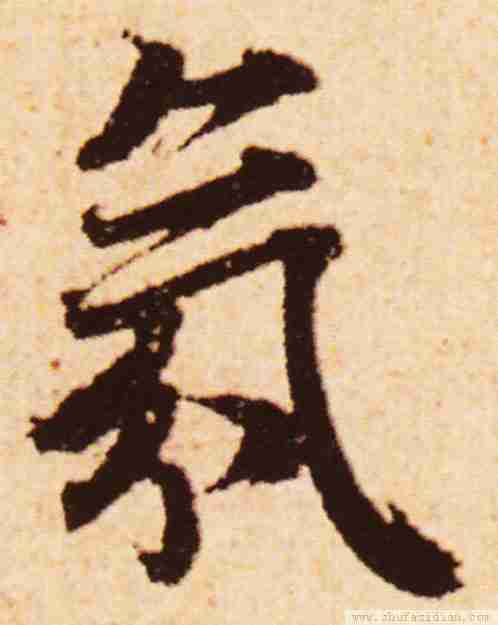 氣
www.shufazidian.com